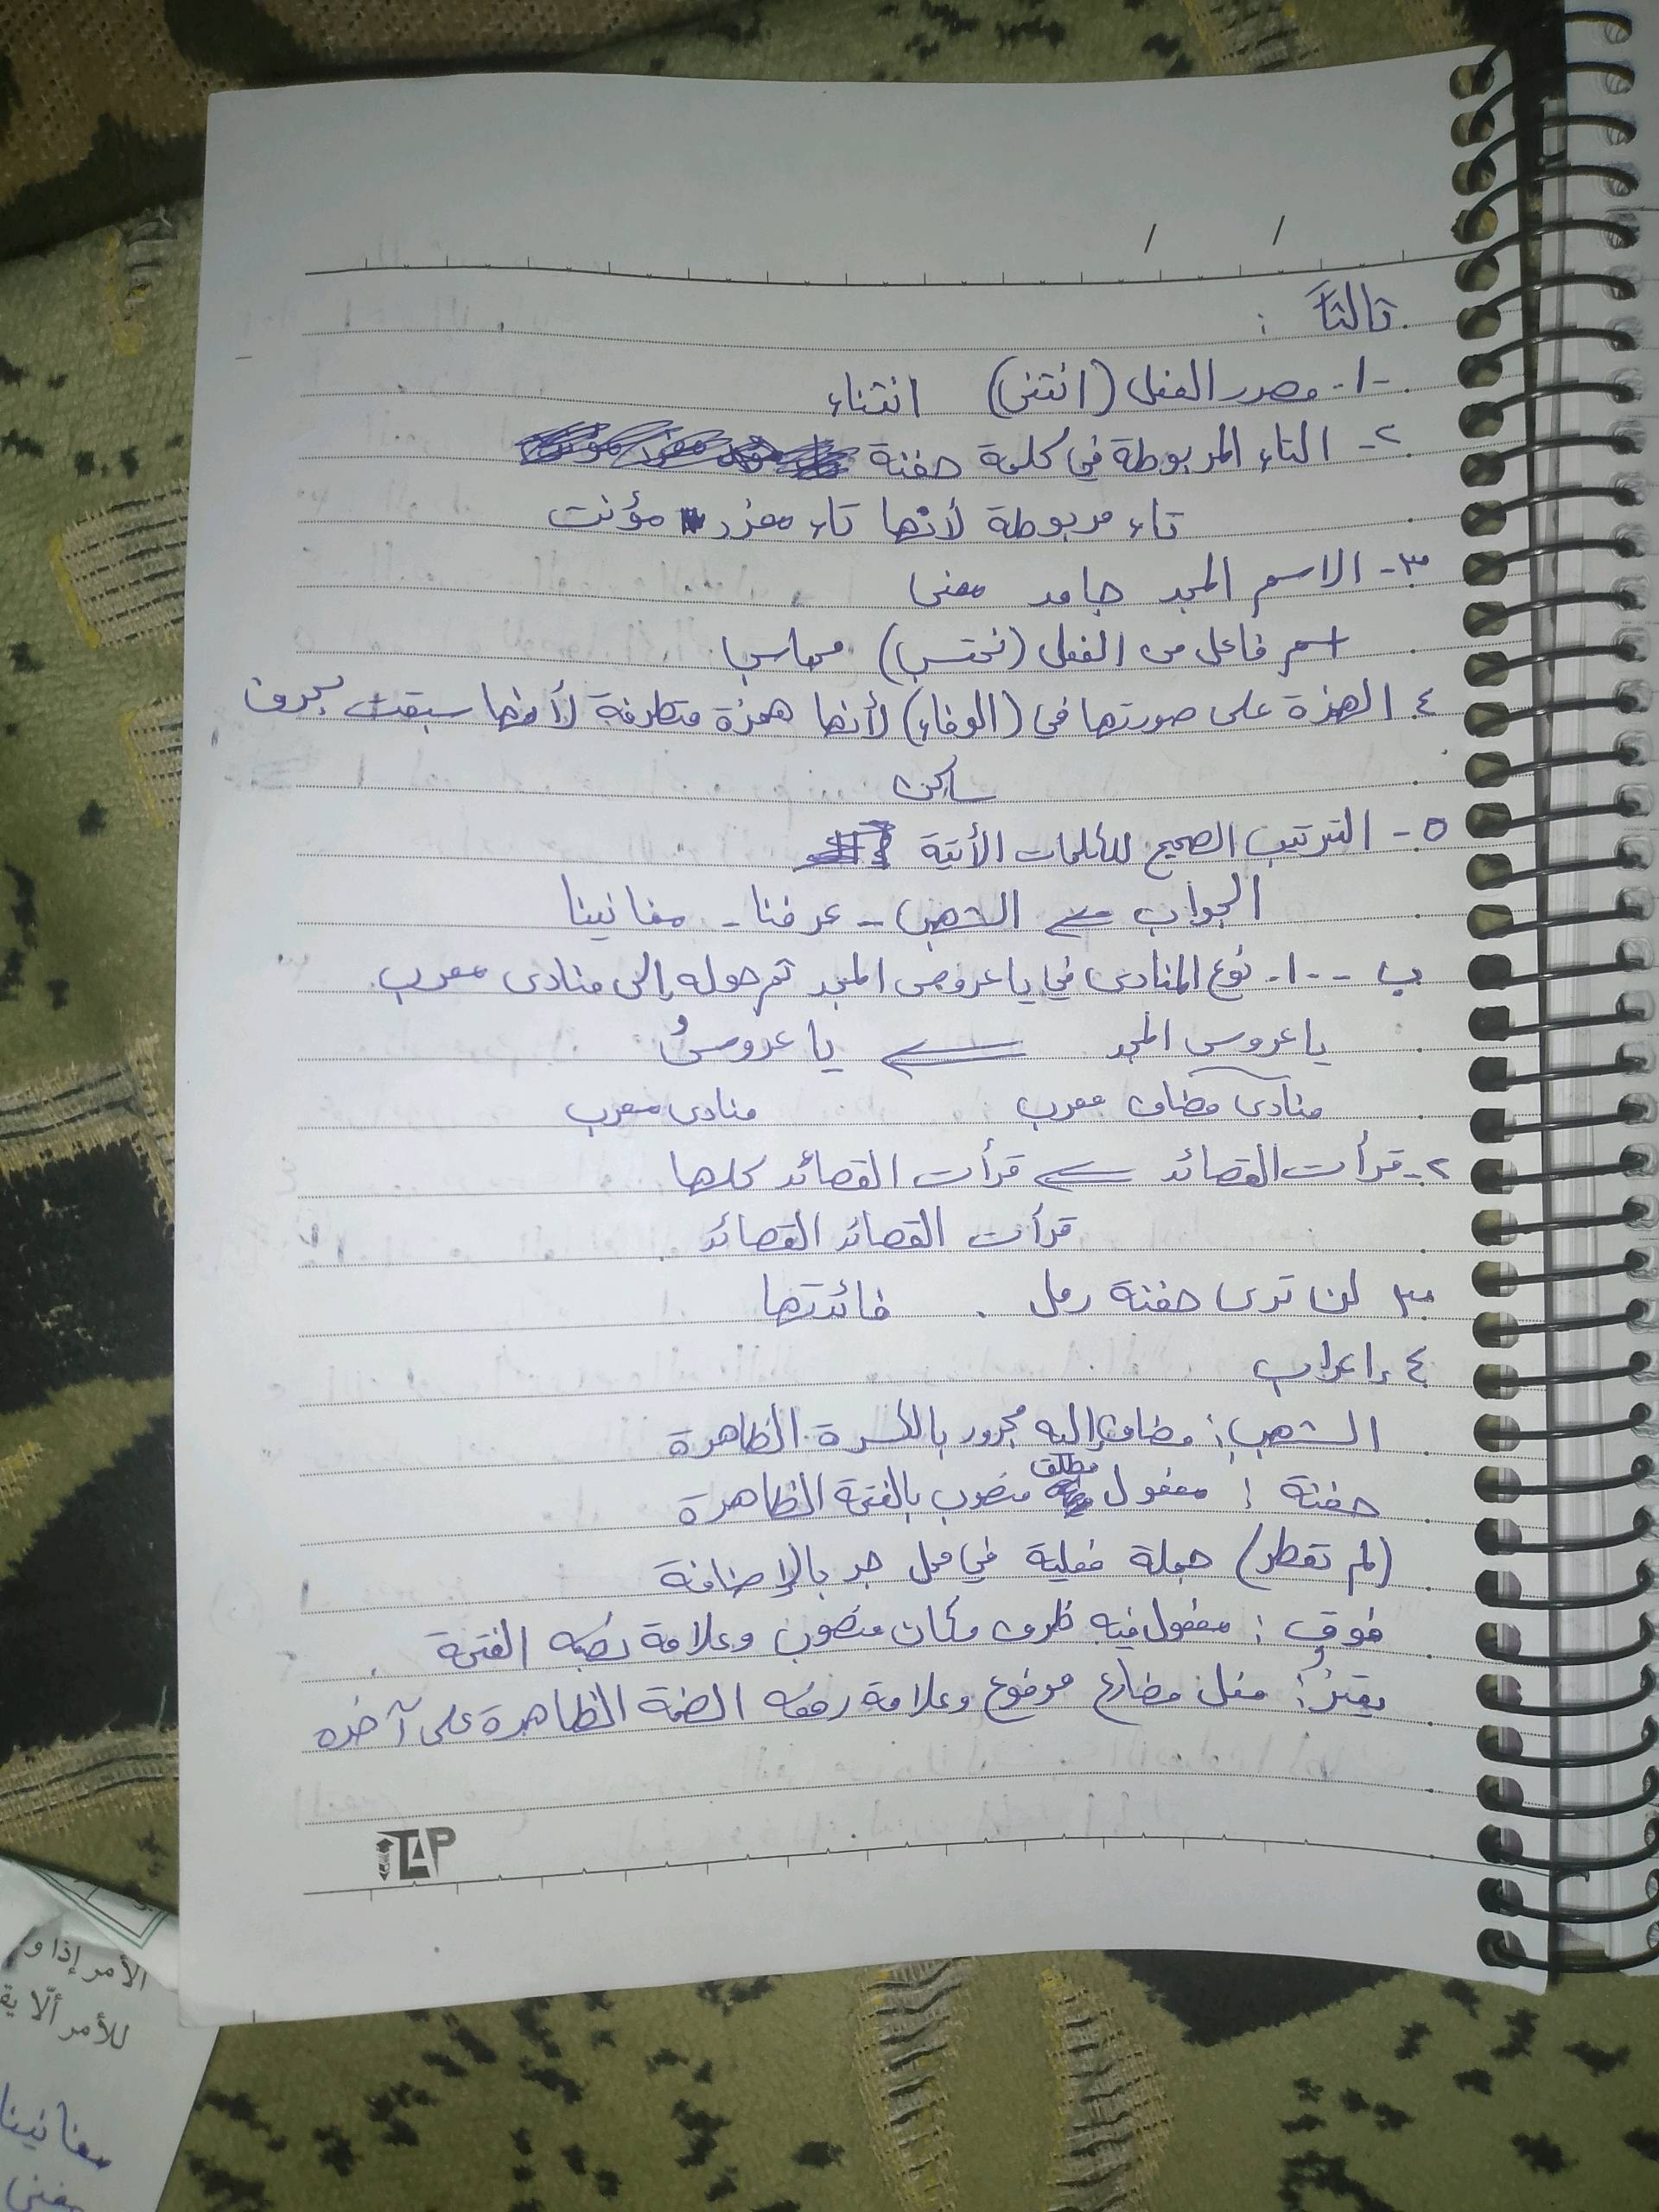 ثالثاً :
١- مصدر الفعل (انتنى) انتناء
٢- التاء المربوطة في كلمة حفنة
تاء مربوطة لأنها تاء مفرد مؤنث
٣- الاسم المجد جامد معنى
اسم فاعل من الفعل (نحتسب) محاسب
٤ الهمزة على صورتها في (الوفاء) لأنها همزة متطرفة لأنها سبقت بحرف
ساكن
٥- الترتيب الصحيح للكلمات الأتية
الجواب الشهب - عرفنا - مغانينا
ب - ١- نوع المنادى في يا عروس المجد ثم حوله إلى منادى معرب
يا عروس المجد يا عروسُ
منادى مضاف معرب منادى معرب
٢- قرأت القصائد قرأت القصائد كلها
قرأت القصائد القصائد
٣ لن ترى حفنة رمل . فائدتها
٤ إعراب
الشهب : مضاف إليه مجرور بالكسرة الظاهرة
حفنة : مفعول مطلق منصوب بالفتحة الظاهرة
(لم تعطر) جملة فعلية في محل جر بالإضافة
فوق : مفعول فيه ظرف مكان منصوب وعلامة نصبه الفتحة
فعل مضارع مرفوع وعلامة رفعه الضمة الظاهرة على آخره
iTLAP
الأمر إذا و
للأمر ألّا يق
مغانينا